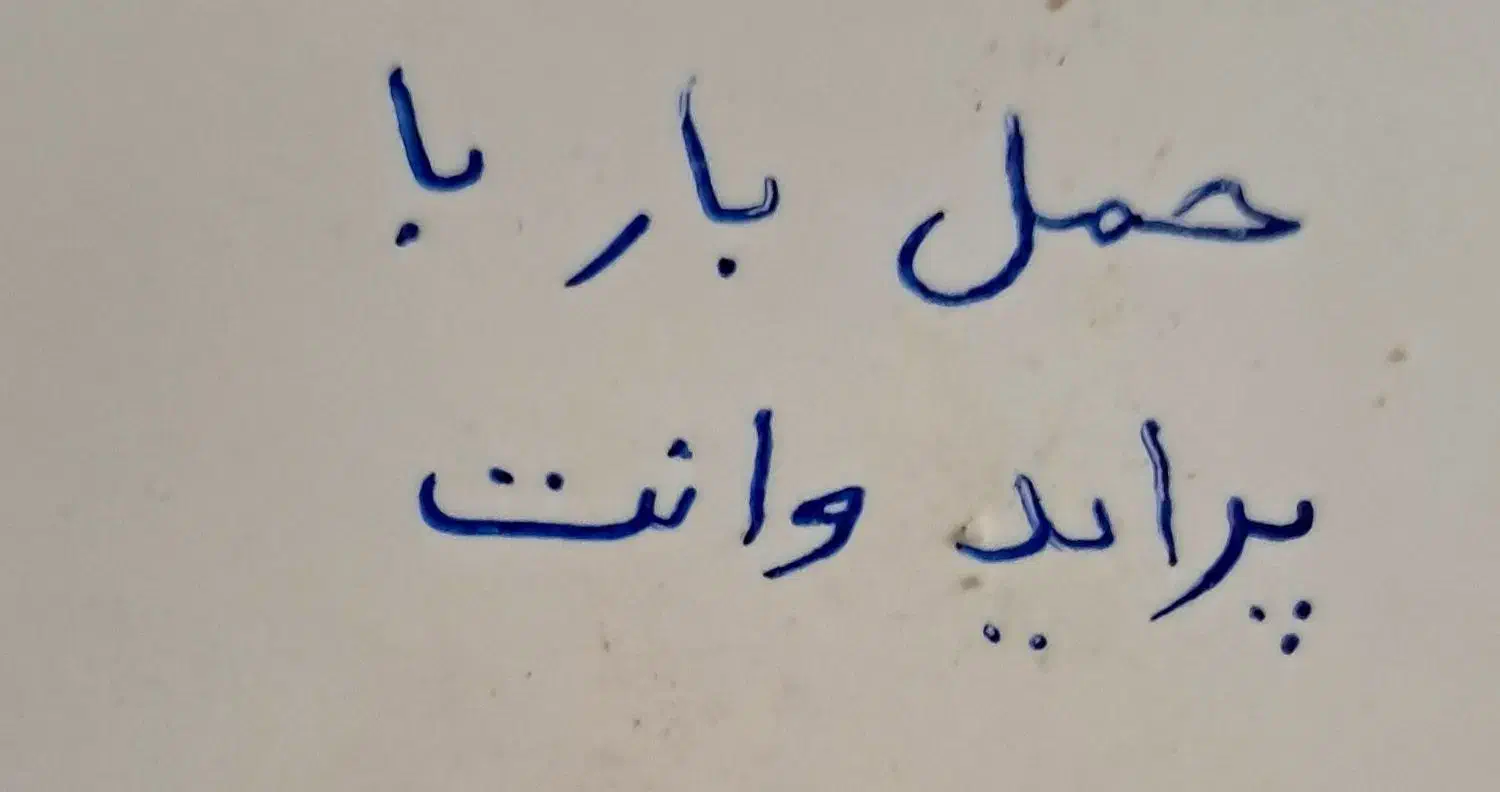 حمل بار با
پراید وانت